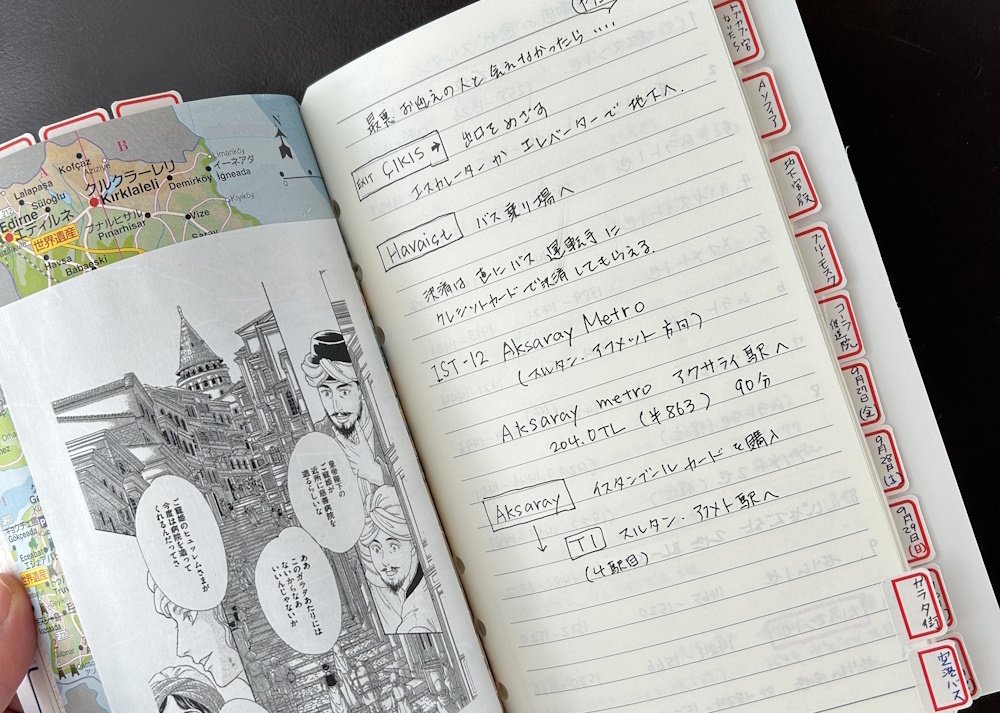 最悪 お迎えの人と会えなかったら ....
EXIT ÇIKIS → 出口をめざす
エスカレーターか エレベーターで 地下へ.
Havaist バス乗り場へ
決済は 直にバス 運転手に
クレジットカードで決済してもらえる.
IST-12 Aksaray Metro
(スルタン・アフメット 方向)
Aksaray metro アクサライ駅へ
204.0TL (¥863) 90分
Aksaray イスタンブールカードを購入
↓ T1 スルタン・アフメト駅へ
(4駅目)
トプカプ宮
Aソフィア
地下宮殿
ブルーモスク
コーラ修道院
9月27日(金)
9月28日(土)
9月29日(日)
ガラタ街
空港バス
A
B
N
Kofçaz
Aziziye
Lalapaşa
Süloğlu
クルクラーレリ
Kırklaleli
Demirköy
Limanköy
イーネアダ
İgneada
Kıyıköy
Edirne
エディルネ
世界遺産
プナルヒサル
Pınarhisar
Vize
Saray
Havsa
Babaeski
Gökçeada
Eceabat
世界遺産
皇帝陛下の
ご寵姫が
近所に慈善病院を
造るらしいな
ご寵姫のヒュッレムさまが
今度は病院を造って
くれるんだってさ
ああガラタあたりには
このテの
ないからなあ
いいんじゃないか